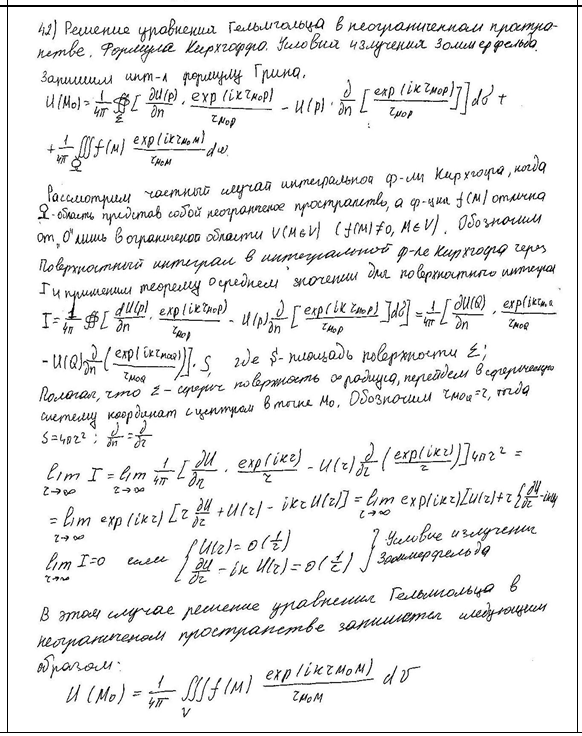 42) Решение уравнения Гельмгольца в неограниченном простра-
нстве. Формула Кирхгоффа. Условия излучения Зоммерфельда.
Запишем инт-л формулу Грина.
U(M₀) = 1/4π ∯_Σ [∂U(p)/∂n · exp(ikr_M₀p)/r_M₀p − U(p) · ∂/∂n [exp(ikr_M₀p)/r_M₀p]] dσ +
+ 1/4π ∭_Ω f(M) exp(ikr_M₀M)/r_M₀M dω.
Рассмотрим частный случай интегральной ф-лы Кирхгофа, когда
Ω-область представ собой неограниченое пространство, а ф-ция f(M) отлична
от "0" лишь в ограниченой области V(M∈V) (f(M)≠0, M∈V). Обозначим
Поверхностный интеграл в интегральной ф-ле Кирхгофа через
I и применим теорему о среднем значении для поверхностного интеграл
I = 1/4π ∯ [∂U(p)/∂n · exp(ikr_M₀p)/r_M₀p − U(p) ∂/∂n [exp(ikr_M₀p)/r_M₀p] dσ] = 1/4π [∂U(Q)/∂n · exp(ikr_M₀Q)/r_M₀Q
− U(Q) ∂/∂n (exp(ikr_M₀Q)/r_M₀Q)] · S, где S-площадь поверхности Σ;
Полагая, что Σ - сферич поверхность ∞ радиуса, перейдем в сферическую
систему координат с центром в точке M₀. Обозначим r_M₀Q = r, тогда
S = 4πr²; ∂/∂n = ∂/∂r
lim_{r→∞} I = lim_{r→∞} 1/4π [∂U/∂r · exp(ikr)/r − U(r) ∂/∂r (exp(ikr)/r)] 4πr² =
= lim_{r→∞} exp(ikr) [r ∂U/∂r + U(r) − ikr U(r)] = lim_{r→∞} exp(ikr) [U(r) + r {∂U/∂r − iku
lim_{r→∞} I = 0 если { U(r) = O(1/r) } Условие излучения
{ ∂U/∂r − ik U(r) = O(1/r) } Зоммерфельда
В этом случае решение уравнения Гельмгольца в
неограниченом пространстве запишется следующим
образом:
U(M₀) = 1/4π ∭_V f(M) exp(ikr_M₀M)/r_M₀M dv